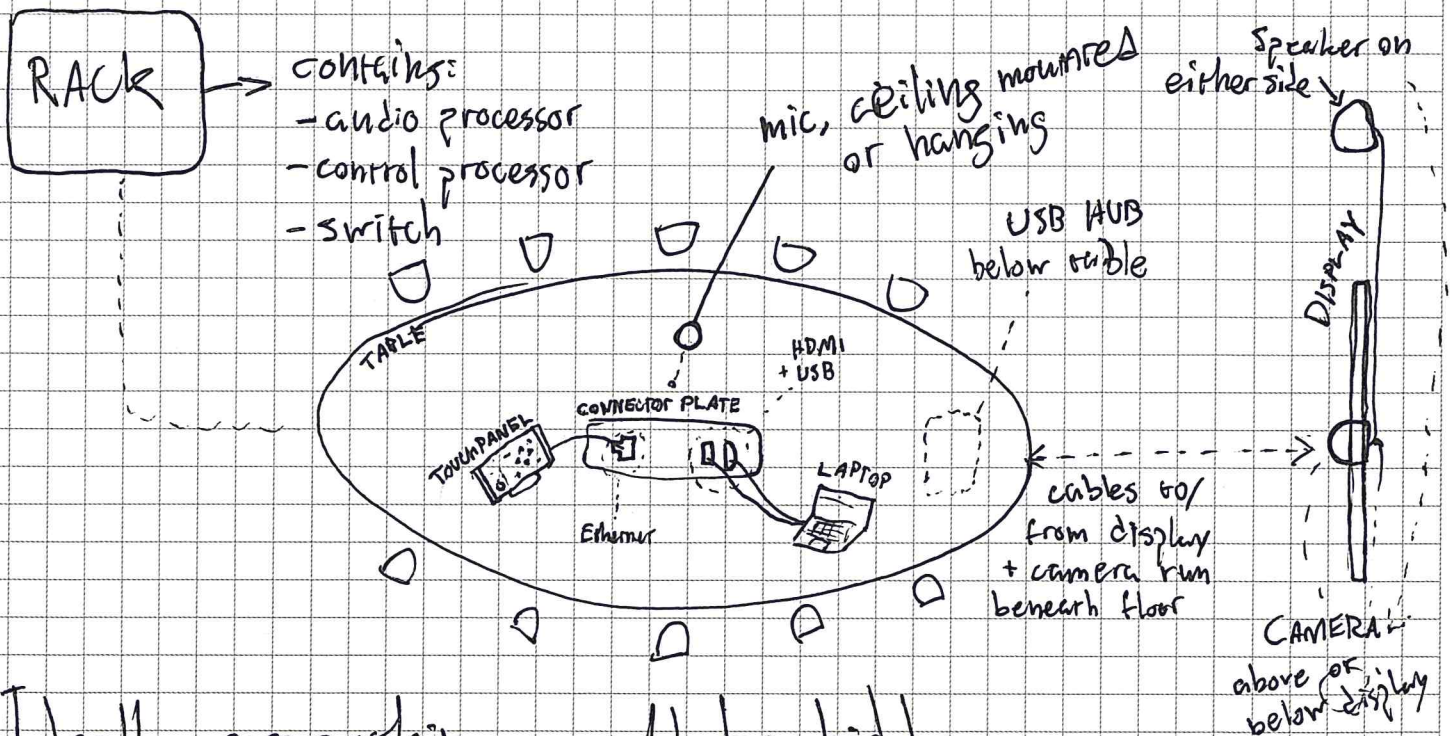 RACK
contains:
- audio processor
- control processor
- switch
mic, ceiling mounted
or hanging
Speaker on
either side
USB HUB
below table
DISPLAY
TABLE
HDMI
+ USB
CONNECTOR PLATE
TOUCHPANEL
LAPTOP
Ethernet
cables to/
from display
+ camera run
beneath floor
CAMERA
above or
below display